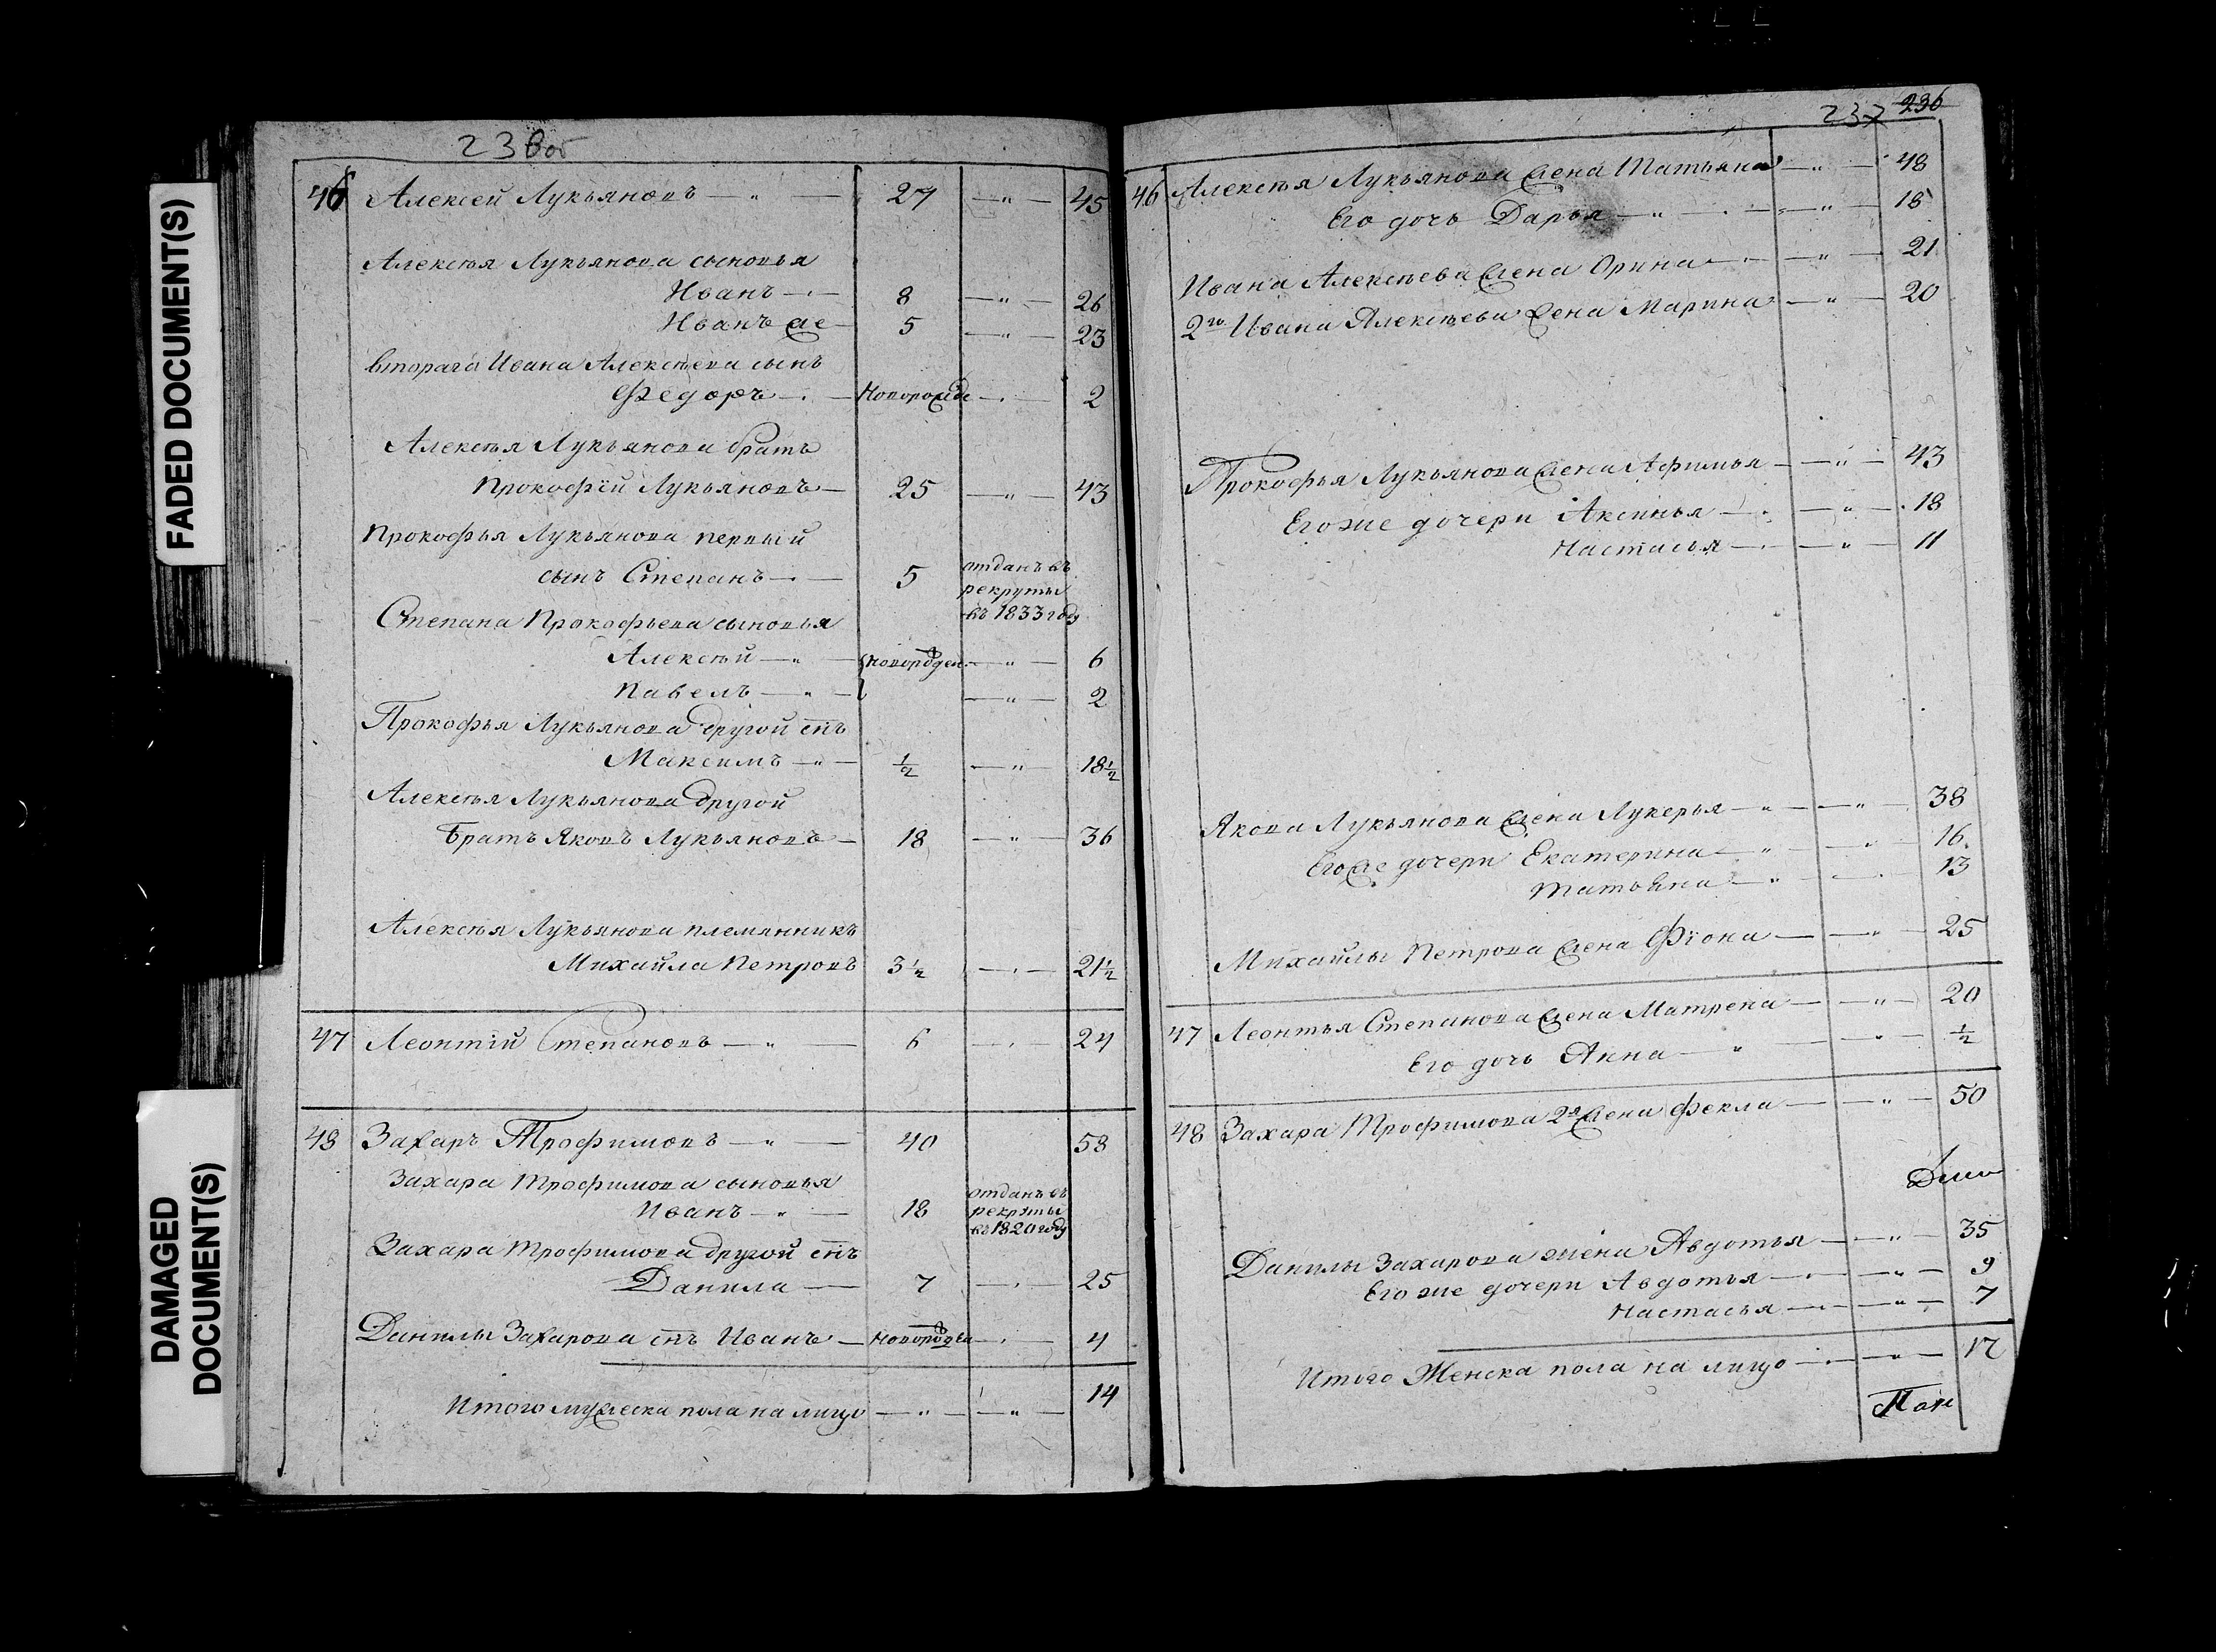 FADED DOCUMENT(S)
DAMAGED
DOCUMENT(S)
23 воб
46 Алексей Лукьяновъ — " — 27 — " — 45
Алексѣя Лукьянова сыновья
Иванъ — 8 — " — 26
Иванъ же — 5 — " — 23
втораго Ивана Алексѣева сынъ
Федоръ — Новорожде — 2
Алексѣя Лукьянова братъ
Прокофій Лукьяновъ — 25 — " — 43
Прокофья Лукьянова первый
сынъ Степанъ — 5 отданъ въ
рекруты
въ 1833 году
Степана Прокофьева сыновья
Алексѣй — " — новорожден — " — 6
Павелъ — " — — " — 2
Прокофья Лукьянова другой снъ
Максимъ — " — ½ — " — 18½
Алексѣя Лукьянова другой
братъ Яковъ Лукьяновъ — 18 — " — 36
Алексѣя Лукьянова племянникъ
Михайла Петровъ 3½ — 21½
47 Леонтій Степановъ — " — 6 — 24
48 Захаръ Трофимовъ — " — 40 58
Захара Трофимова сыновья
Иванъ — " — 18 отданъ въ
рекруты
въ 1820 году
Захара Трофимова другой снъ
Данила — 7 — 25
Данилы Захарова снъ Иванъ — новорожден — 4
Итого мужеска пола на лицо — " — — " — 14
237 236
46 Алексѣя Лукьянова жена Татьяна — " — 48
Его дочь Дарья — " — — " — 18
Ивана Алексѣева жена Орина — — " — 21
2го Ивана Алексѣева жена Марина — " — 20
Прокофья Лукьянова жена Афимья — — " — 43
Его же дочери Аксинья — — " — 18
Настасья — — " — 11
Якова Лукьянова жена Лукерья — " — — " — 38
Его же дочери Екатерина — " — — " — 16
Татьяна — " — 13
Михайлы Петрова жена Фіона — — " — 25
47 Леонтья Степанова жена Матрена — — " — 20
Его дочь Анна — " — — " — ½
48 Захара Трофимова 2я жена Фекла — — " — 50
Данилы Захарова жена Авдотья — — " — 35
Его же дочери Авдотья — — " — 9
Настасья — — " — 7
Итого Женска пола на лицо — — " — 17